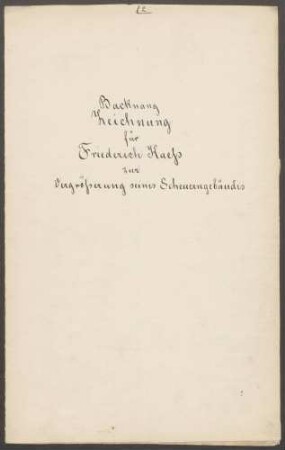 Backnang
Zeichnung
für
Friederich Haeß
zur
Vergrößerung seines Scheuerngebäudes